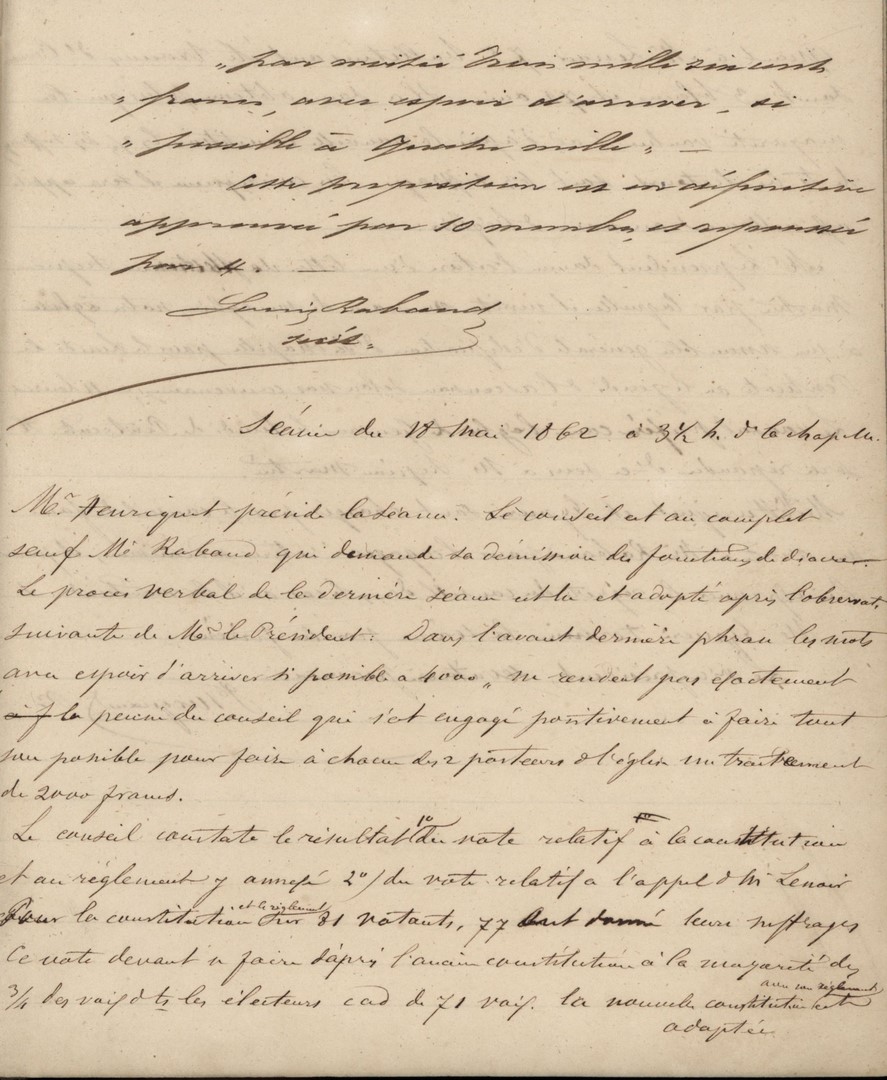 „ par moitié trois mille cinq cents
„ francs, avec espoir d'arriver, si
„ possible à quatre mille „ —
Cette proposition est en définitive
approuvée par 10 membres et repoussée
par 4. —
Louis Rabaud
secrét.
Séance du 18 Mai 1862 à 3 1/2 h. d la chapelle.
Mr. Henriquet préside la séance. Le conseil est au complet
sauf Mr Rabaud qui demande sa démission des fonctions de diacre.
Le procès verbal de la dernière séance est lu et adopté après l'observat.
suivante de Mr le Président : Dans l'avant dernière phrase les mots
avec espoir d'arriver si possible à 4000 „ ne rendent pas exactement
la pensée du conseil qui s'est engagé positivement à faire tout
son possible pour faire à chacun des 2 pasteurs d l'église un traitement
de 2000 francs.
Le conseil constate le résultat 1o du vote relatif à la constitution
et au règlement y annexé 2o) du vote relatif a l'appel d Mr Lenoir
Pour la constitution et le règlement sur 81 votants, 77 ont donné leurs suffrages
Ce vote devant se faire d'après l'ancienne constitution à la majorité des
3/4 des voix d ts les électeurs cad de 71 voix. la nouvelle constitution avec son règlement est
adoptée